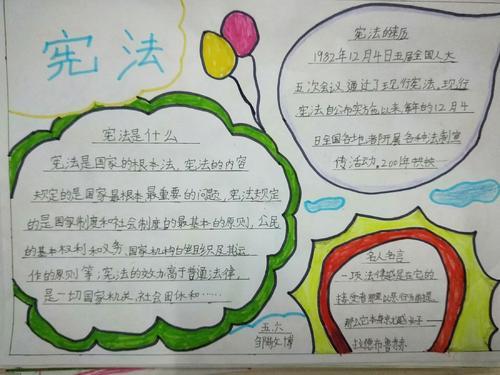 宪法
宪法是什么
宪法是国家的根本法,宪法的内容
规定的是国家最根本最重要的问题,宪法规定
的是国家制度和社会制度的最基本的原则,公民
的基本权利和义务,国家机构的组织及其运
作的原则等,宪法的效力高于普通法律,
是一切国家机关,社会团体和……
五六
宪法的来历
1982年12月4日五届全国人大
五次会议通过了现行宪法,现行
宪法自公布实施以来,每年的12月4
日全国各地都开展各种法制宣
传活动,2001年
名人名言
一项法律越是在它的
接受者那以
那么它本身
拉德布鲁赫